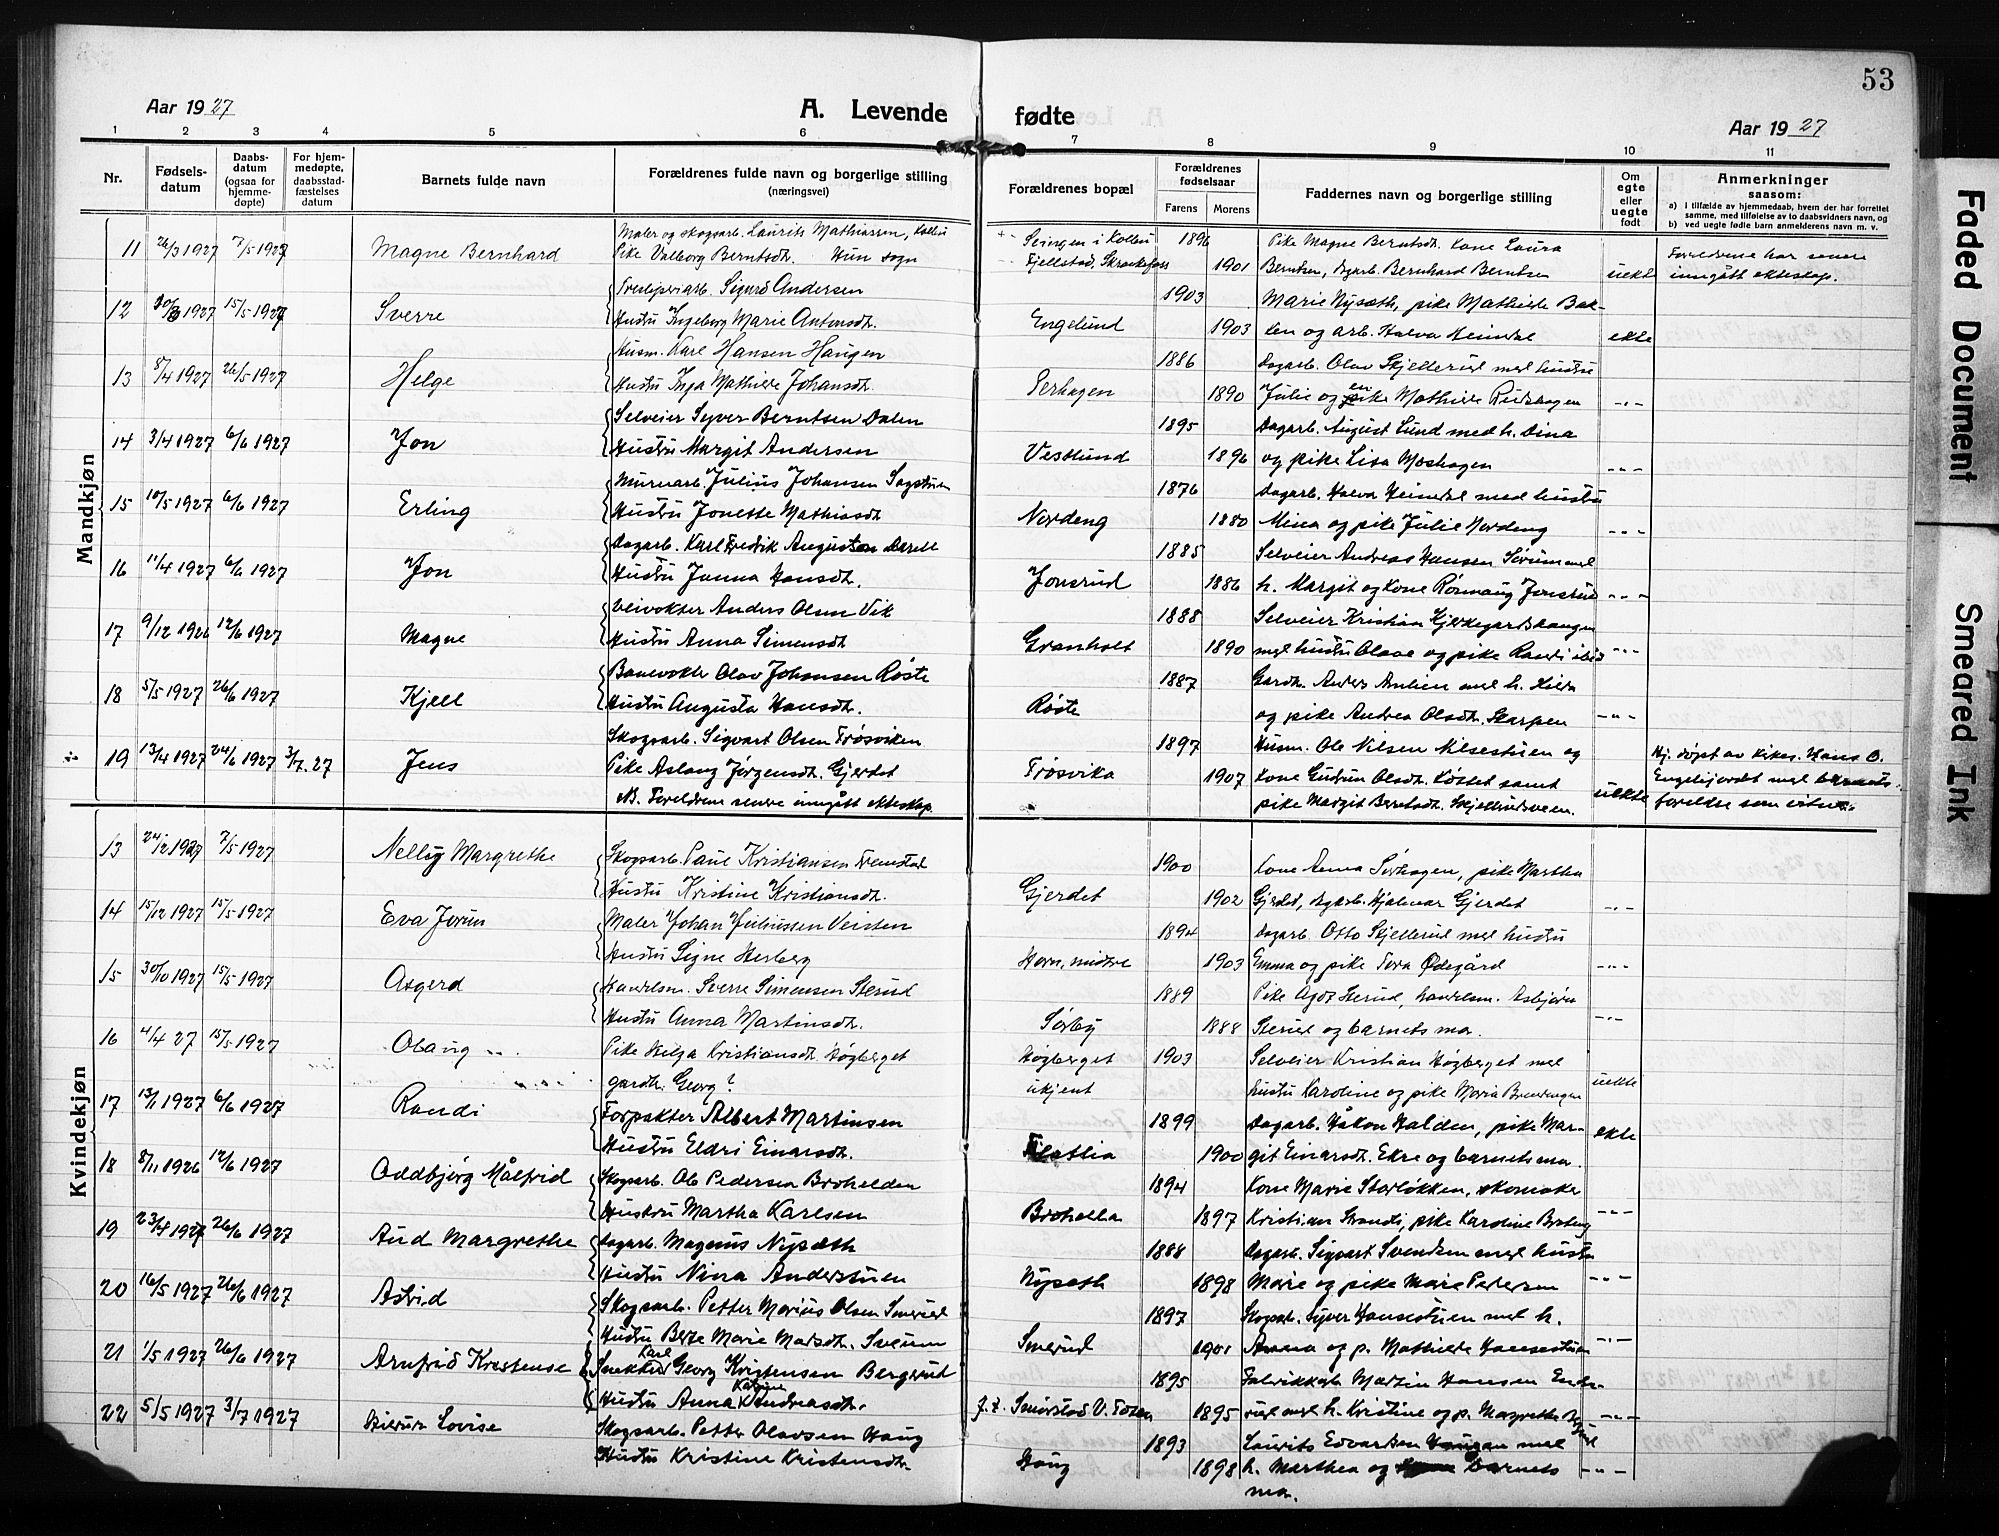 53
Aar 1927
A. Levende
fødte
Aar 1927
1 2 3 4 5 6 7 8 9 10 11
Nr.
Fødsels-
datum
Daabs-
datum
(ogsaa for
hjemme-
døpte)
For hjem-
medøpte,
daabsstad-
fæstelses
datum
Barnets fulde navn
Forældrenes fulde navn og borgerlige stilling
(næringsvei)
Forældrenes bopæl
Forældrenes
fødselsaar
Farens Morens
Faddernes navn og borgerlige stilling
Om
egte
eller
uegte
født
Anmerkninger
saasom:
a) i tilfælde av hjemmedaab, hvem der har forrettet
samme, med tilføielse av to daabsvidners navn, og
b) ved uegte fødte barn anmelderens navn m. v.
Mandkjøn
11 26/3 1927 7/5 1927 Magne Bernhard
Maler og skogsarb. Laurits Mathiassen, Kolbu
Pike Valborg Berntsdt. Hun sogn
Svingen i Kolbu
Fjellstad, Skrankefoss
1896
1901
Pike Magne Berntsdt. Kone Laura
Berntsen, dagarb. Bernhard Berntsen
uekte
Foreldrene har senere
inngått ekteskap.
12 15/5 1927 Sverre
Sigurd Andersen
Hustru Ingeborg Marie Antonsdt.
Engelund
1903
1903
Marie Nysæth, pike Mathilde Bak-
ken og arb. Halvor Heimdal
ekte
13 8/4 1927 26/5 1927 Helge
Husm. Karl Hansen Haugen
Hustru Inga Mathilde Johansdt.
Perhagen
1886
1890
Dagarb. Olav Skjellerud med hustru
Julie og pike Mathilde Rudshagen
-"-
14 3/4 1927 6/6 1927 Jon
Selveier Syver Berntsen Dalen
Hustru Margit Andersen
Vestlund
1895
1896
Dagarb. August Lund med h. Dina
og pike Lisa Moshagen
-"-
15 10/5 1927 6/6 1927 Erling
Murarb. Julius Johansen Sagstuen
Hustru Jonette Mathiasdt.
Nordeng
1876
1880
Dagarb. Halvor Heimdal med hustru
Mina og pike Julie Nordeng
-"-
16 11/4 1927 6/6 1927 Jon
Dagarb. Karl Fredrik Auguston
Hustru Janna Hansdt.
Jonsrud
1885
1886
Selveier Andreas Hansen Sørum med
h. Margit og kone Rønnaug Jonsrud
-"-
17 9/12 1926 12/6 1927 Magne
Veivokter Anders Olsen Vik
Hustru Anna Simensdt
Granholt
1888
1890
Selveier Kristian Kjerkegardshaugen
med hustru Olave og pike Randi ibid
-"-
18 5/5 1927 26/6 1927 Kjell
Banevokter Olav Johansen Røste
Hustru Augusta Hansdt.
Røste
1887
Gardbr. Anders Anlien med h.
og pike Andrea Olsdt. Skarpen
-"-
19 13/4 1927 24/6 1927 3/7.27 Jens
Skogsarb. Sigvart Olsen Trøsviken
Pike Aslaug Jørgensdt. Gjerdet
N. Foreldrene senere inngått ekteskap.
Trøsvika
1897
1907
Husm. Ole Nilsen Nilsestuen og
kone Gudrun Olsdt. Kostet samt
pike Margit Berntsdt. Skjellerudsveen.
uekte
Hj. døpt av kirkes. Hans O.
Engelijordt med barnets
foreldre som vitner.
Kvindekjøn
13 24/2 1927 7/5 1927 Nelly Margrethe
Skogsarb. Paul Kristiansen Fremstad
Hustru Kristine Kristiansdt.
Gjerdet
1900
1902
Kone Anna Sørhagen, pike Martha
Gjerdet, dagarb. Hjalmar Gjerdet
-"-
14 15/12 1927 15/5 1927 Eva Jorun
Maler Johan Juliussen Veisten
Hustru Signe Herberg
Horn, midtre
1894
1903
Dagarb. Otto Skjellerud med hustru
Emma og pike Tora Ødegård
-"-
15 30/10 1927 15/5 1927 Asgerd
Handelsm. Sverre Simensen Sterud
Hustru Anna Martinsdt.
Sørby
1889
1888
Pike Agot Sterud, handelsm. Asbjørn
Sterud og barnets mor.
-"-
16 4/4 27 15/5 1927 Olaug
Pike Helga Kristiansdt. Høgberget
gardbr. Georg?
Høgberget
ukjent
1903
Selveier Kristian Høgberget med
hustru Karoline og pike Maria
uekte
17 13/1 1927 6/6 1927 Randi
Forpakter Albert Martinsen
Hustru Eldri Einarsdt.
Flatlia
1899
1900
Dagarb. Håkon Halden, pike Mar-
git Einarsdt. Ekre og barnets mor.
ekte
18 8/11 1926 12/6 1927 Oddbjørg Målfrid
Skogsarb. Ole Pedersen Brohelden
Hustru Martha Karlsen
Brohella
1894
1897
Kone Marie Storløkken, skomaker
Kristian Strandi, pike Karoline
-"-
19 23/4 1927 26/6 1927 Aud Margrethe
Dagarb. Magnus Nysæth
Hustru Nina Anderstuen
Nysæth
1888
1898
Dagarb. Sigvart Svendsen med hustru
Marie og pike Marie Pedersen
-"-
20 16/5 1927 26/6 1927 Astrid
Skogsarb. Petter Marius Olsen Smerud
Hustru Berte Marie Matsdt. Sveum
Smerud
1897
1901
Skogsarb. Syver Hansestuen med h.
Anna og p. Mathilde Hansestuen
-"-
21 1/5 1927 26/6 1927 Arnfrid Krestense
Karl
Georg Kristensen Bergerud
Katrine
Hustru Anna Andreasdt.
f. t. Smørstad V. Toten
1895
1895
Fabrikkarb. Martin Hansen
med h. Kristine og p. Margrethe
-"-
22 5/5 1927 3/7 1927 Lovise
Skogsarb. Petter Olavsen Haug
Hustru Kristine Kristensdt.
Haug
1893
1898
Laurits Edvardsen Haugan med
h. Marthea og barnets
mor.
-"-
Faded Document
Smeared Ink